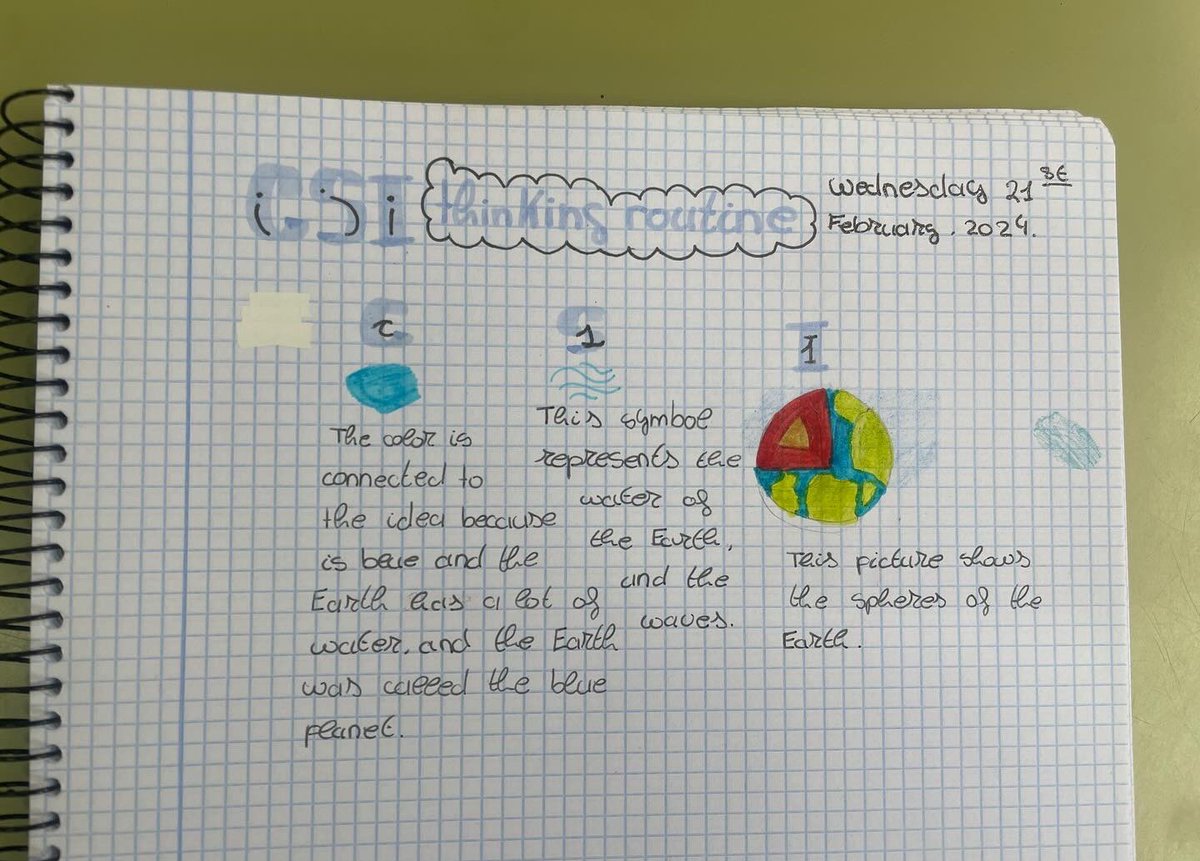 CSI thinking routine
Wednesday 21st
February, 2024.
C
The color is
connected to
the idea because
is blue and the
Earth has a lot of
water, and the Earth
was called the blue
planet.
S
This symbol
represents the
water of
the Earth,
and the
waves.
I
This picture shows
the spheres of the
Earth.